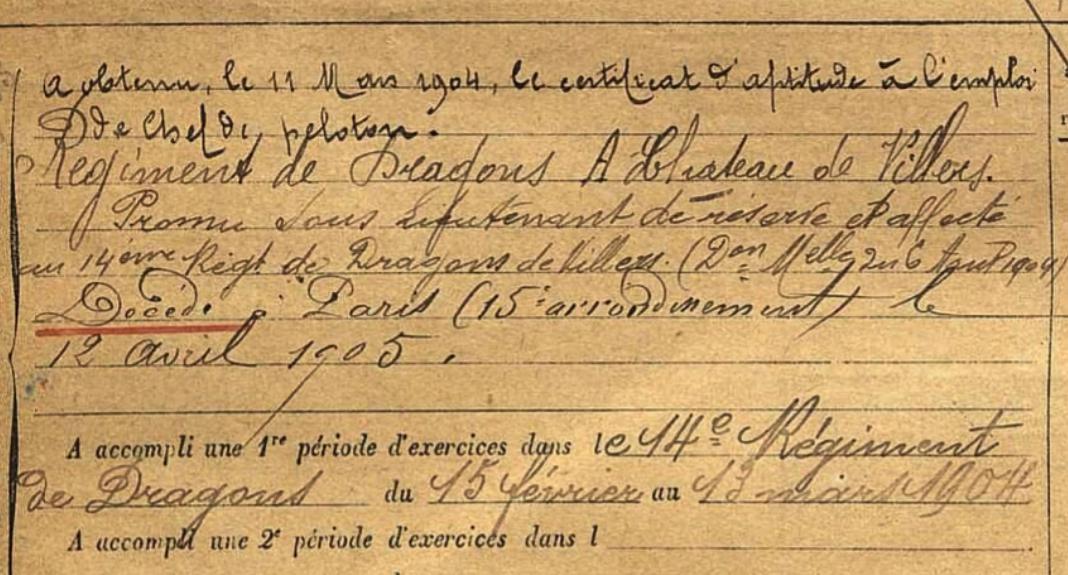 a obtenu, le 11 Mars 1904, le certificat d'aptitude à l'emploi
de Chef de peloton.
Régiment de Dragons A Chateau de Villers.
Promu Sous Lieutenant de réserve et affecté
au 14ème Régt de Dragons de Villers. (Don Melle du 6 Aout 1904)
Décédé à Paris (15e arrondissement) le
12 avril 1905.
A accompli une 1re période d'exercices dans le 14e Régiment
de Dragons du 15 février au 13 mars 1904
A accompli une 2e période d'exercices dans l